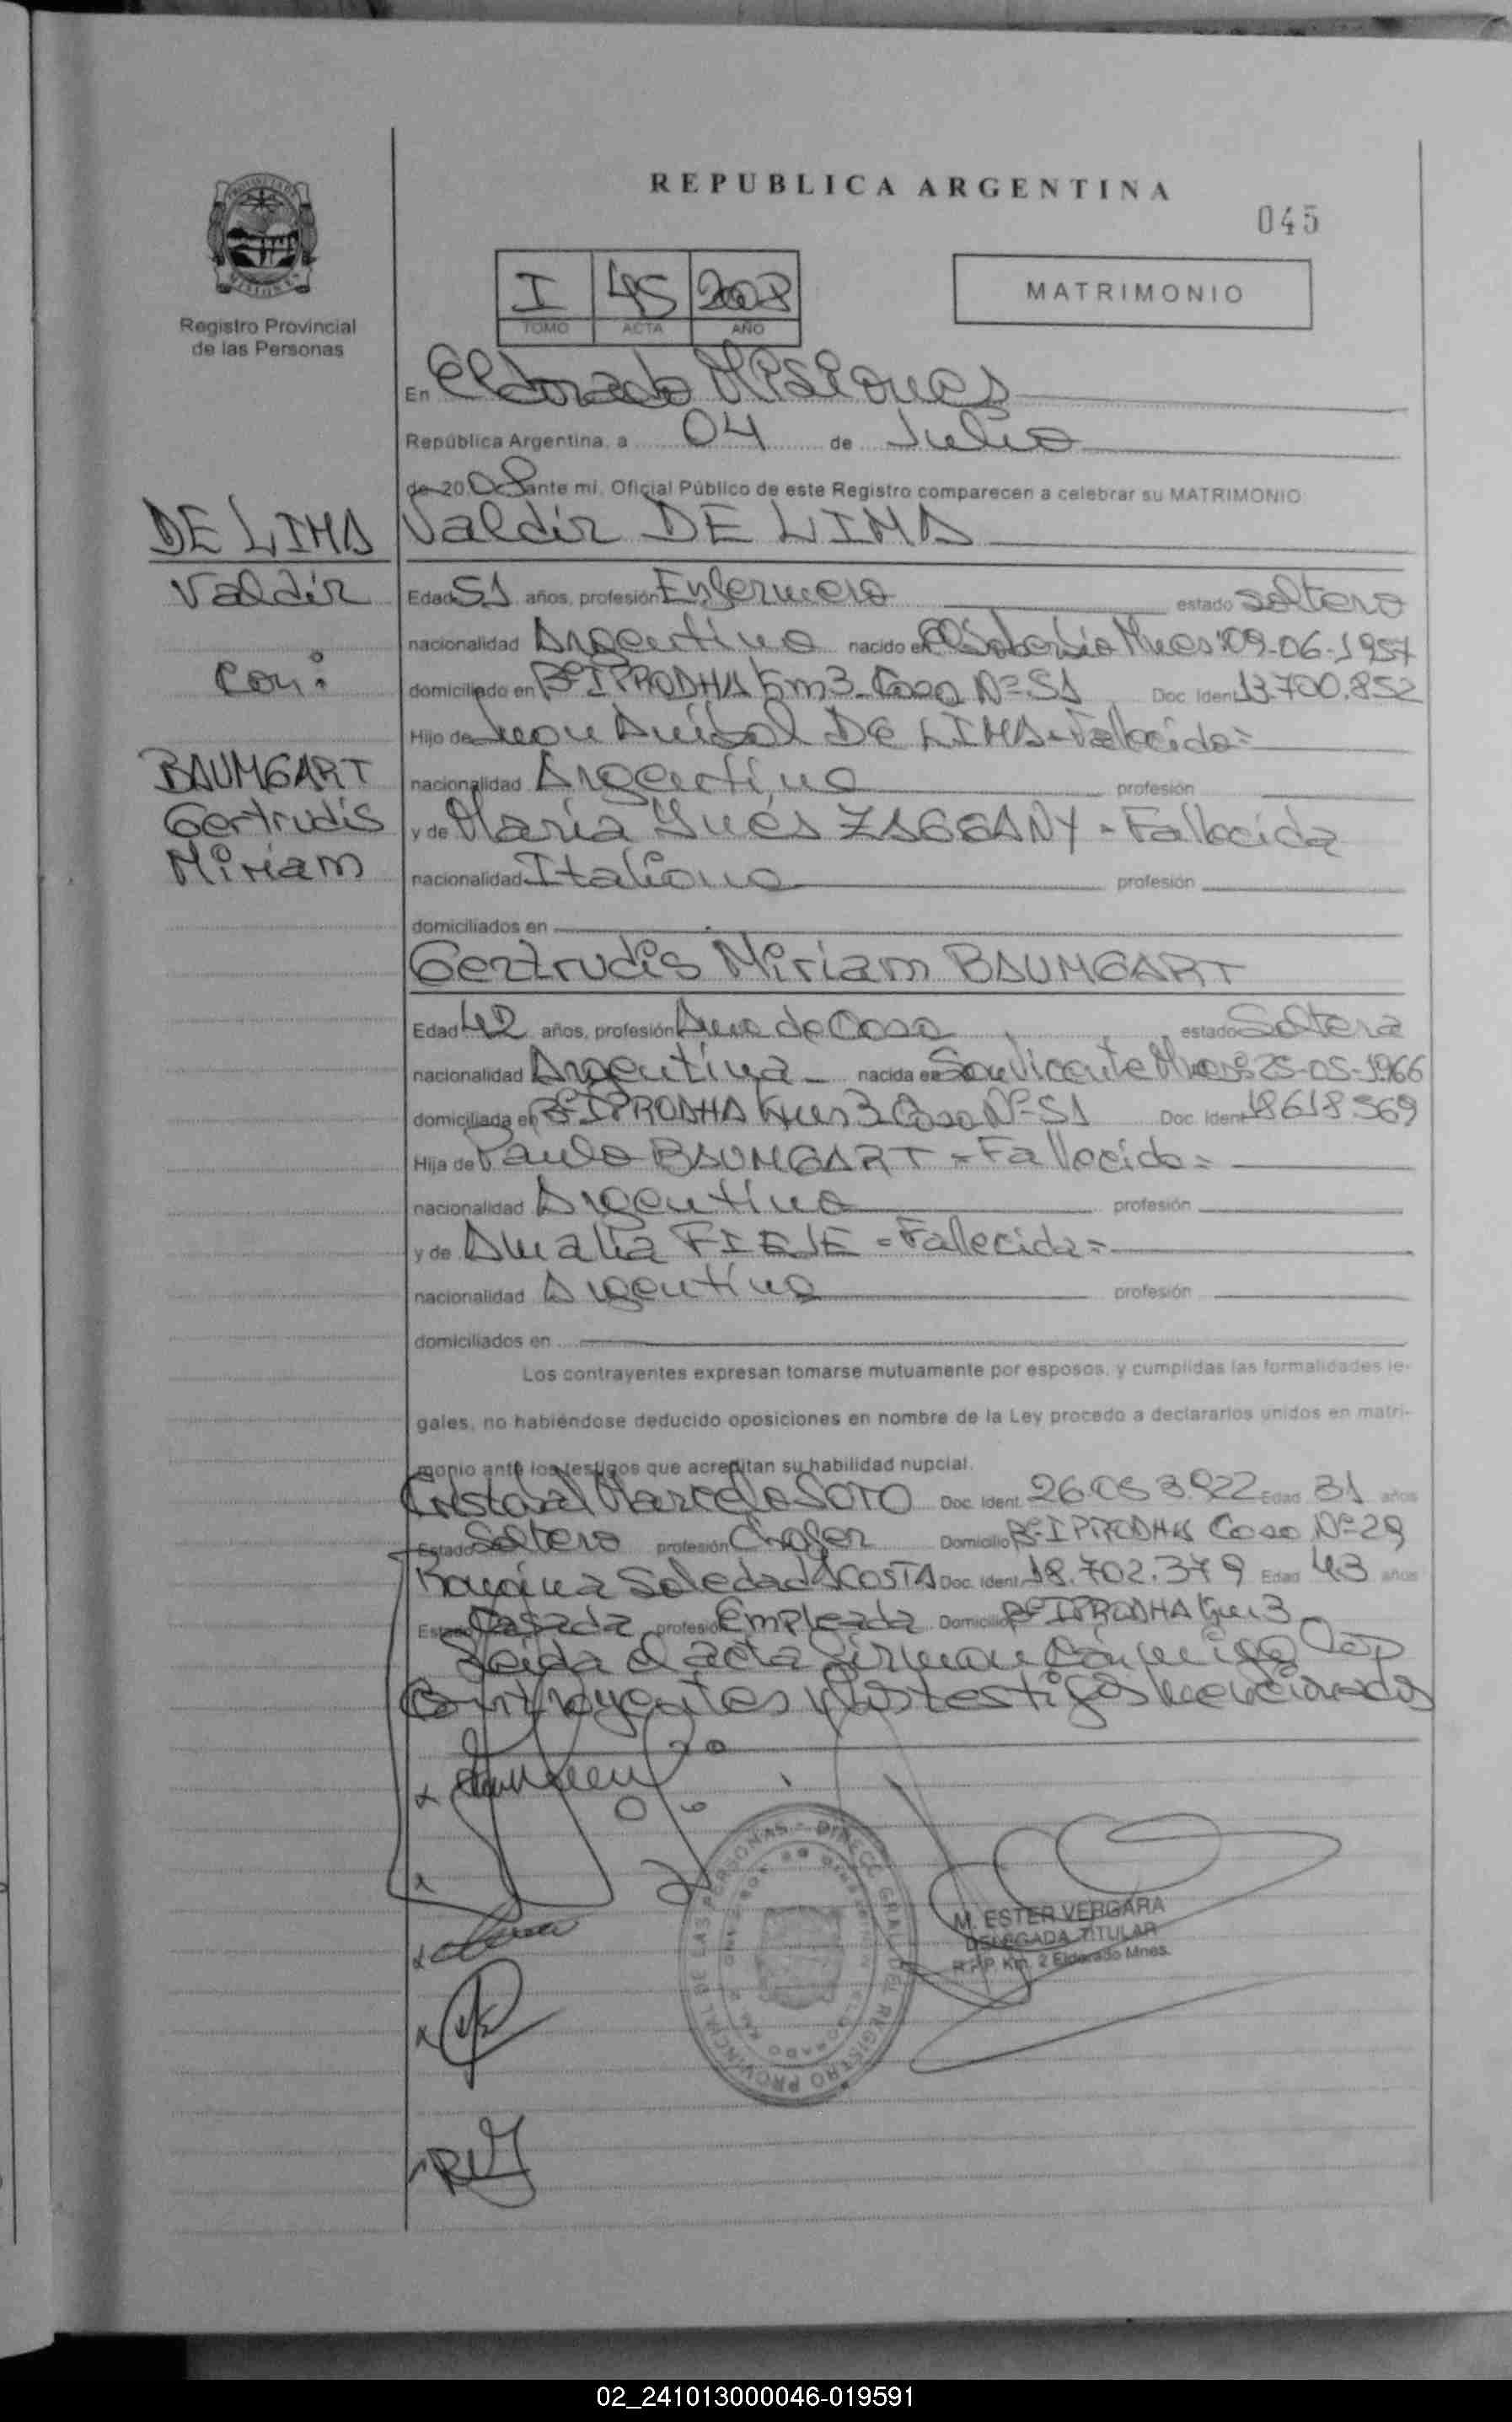 REPUBLICA ARGENTINA
045
I 45 2008
TOMO ACTA AÑO
MATRIMONIO
Registro Provincial
de las Personas
En Eldorado Misiones
República Argentina, a 04 de Julio
de 2008 ante mí, Oficial Público de este Registro comparecen a celebrar su MATRIMONIO
DE LIMA
Valdir
Con:
BAUMGART
Gertrudis
Miriam
Valdir DE LIMA
Edad 51 años, profesión Enfermero estado soltero
nacionalidad Argentino nacido en El Soberbio Mnes: 09-06-1957
domiciliado en Bº IPRODHA Km 3 Casa Nº 51 Doc. Ident. 13.700.852
Hijo de Juan Anibal DE LIMA - Fallecido =
nacionalidad Argentino profesión
y de María Inés ZAGGANY - Fallecida
nacionalidad Italiana profesión
domiciliados en
Gertrudis Miriam BAUMGART
Edad 42 años, profesión Ama de Casa estado Soltera
nacionalidad Argentina nacida en San Vicente Mnes: 25-05-1966
domiciliada en Bº IPRODHA Km 3 Casa Nº 51 Doc. Ident. 18618.569
Hija de Paulo BAUMGART = Fallecido =
nacionalidad Argentino profesión
y de Amalia FIEJE = Fallecida =
nacionalidad Argentina profesión
domiciliados en
Los contrayentes expresan tomarse mutuamente por esposos, y cumplidas las formalidades le-
gales, no habiéndose deducido oposiciones en nombre de la Ley procedo a declararlos unidos en matri-
monio ante los testigos que acreditan su habilidad nupcial.
Cristobal Marcelo SOTO Doc. Ident. 26.053.922 Edad 31 años
Estado Soltero profesión Chofer Domicilio Bº IPRODHA Casa Nº 29
Soledad ACOSTA Doc. Ident. 18.702.379 Edad 43 años
Estado Casada profesión Empleada Domicilio Bº IPRODHA Km 3
Leída el acta firman conmigo los
Contrayentes y los testigos mencionados
M. ESTER VERGARA
DELEGADA TITULAR
R.P.P. Km. 2 Eldorado Mnes.
DIRECC. GRAL. DEL REGISTRO PROVINCIAL DE LAS PERSONAS
02_241013000046-019591